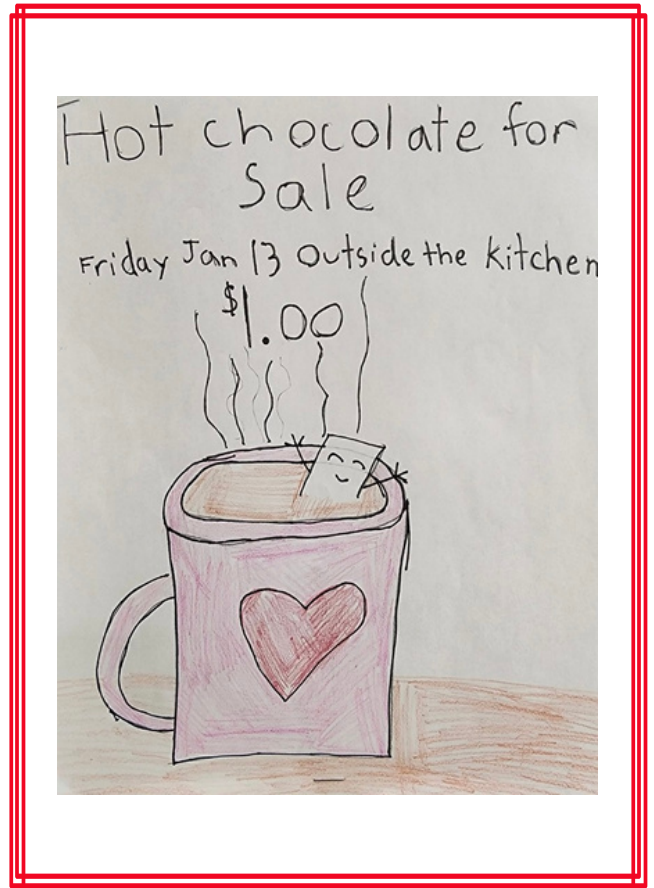 Hot chocolate for
Sale
Friday Jan 13 Outside the kitchen
$1.00